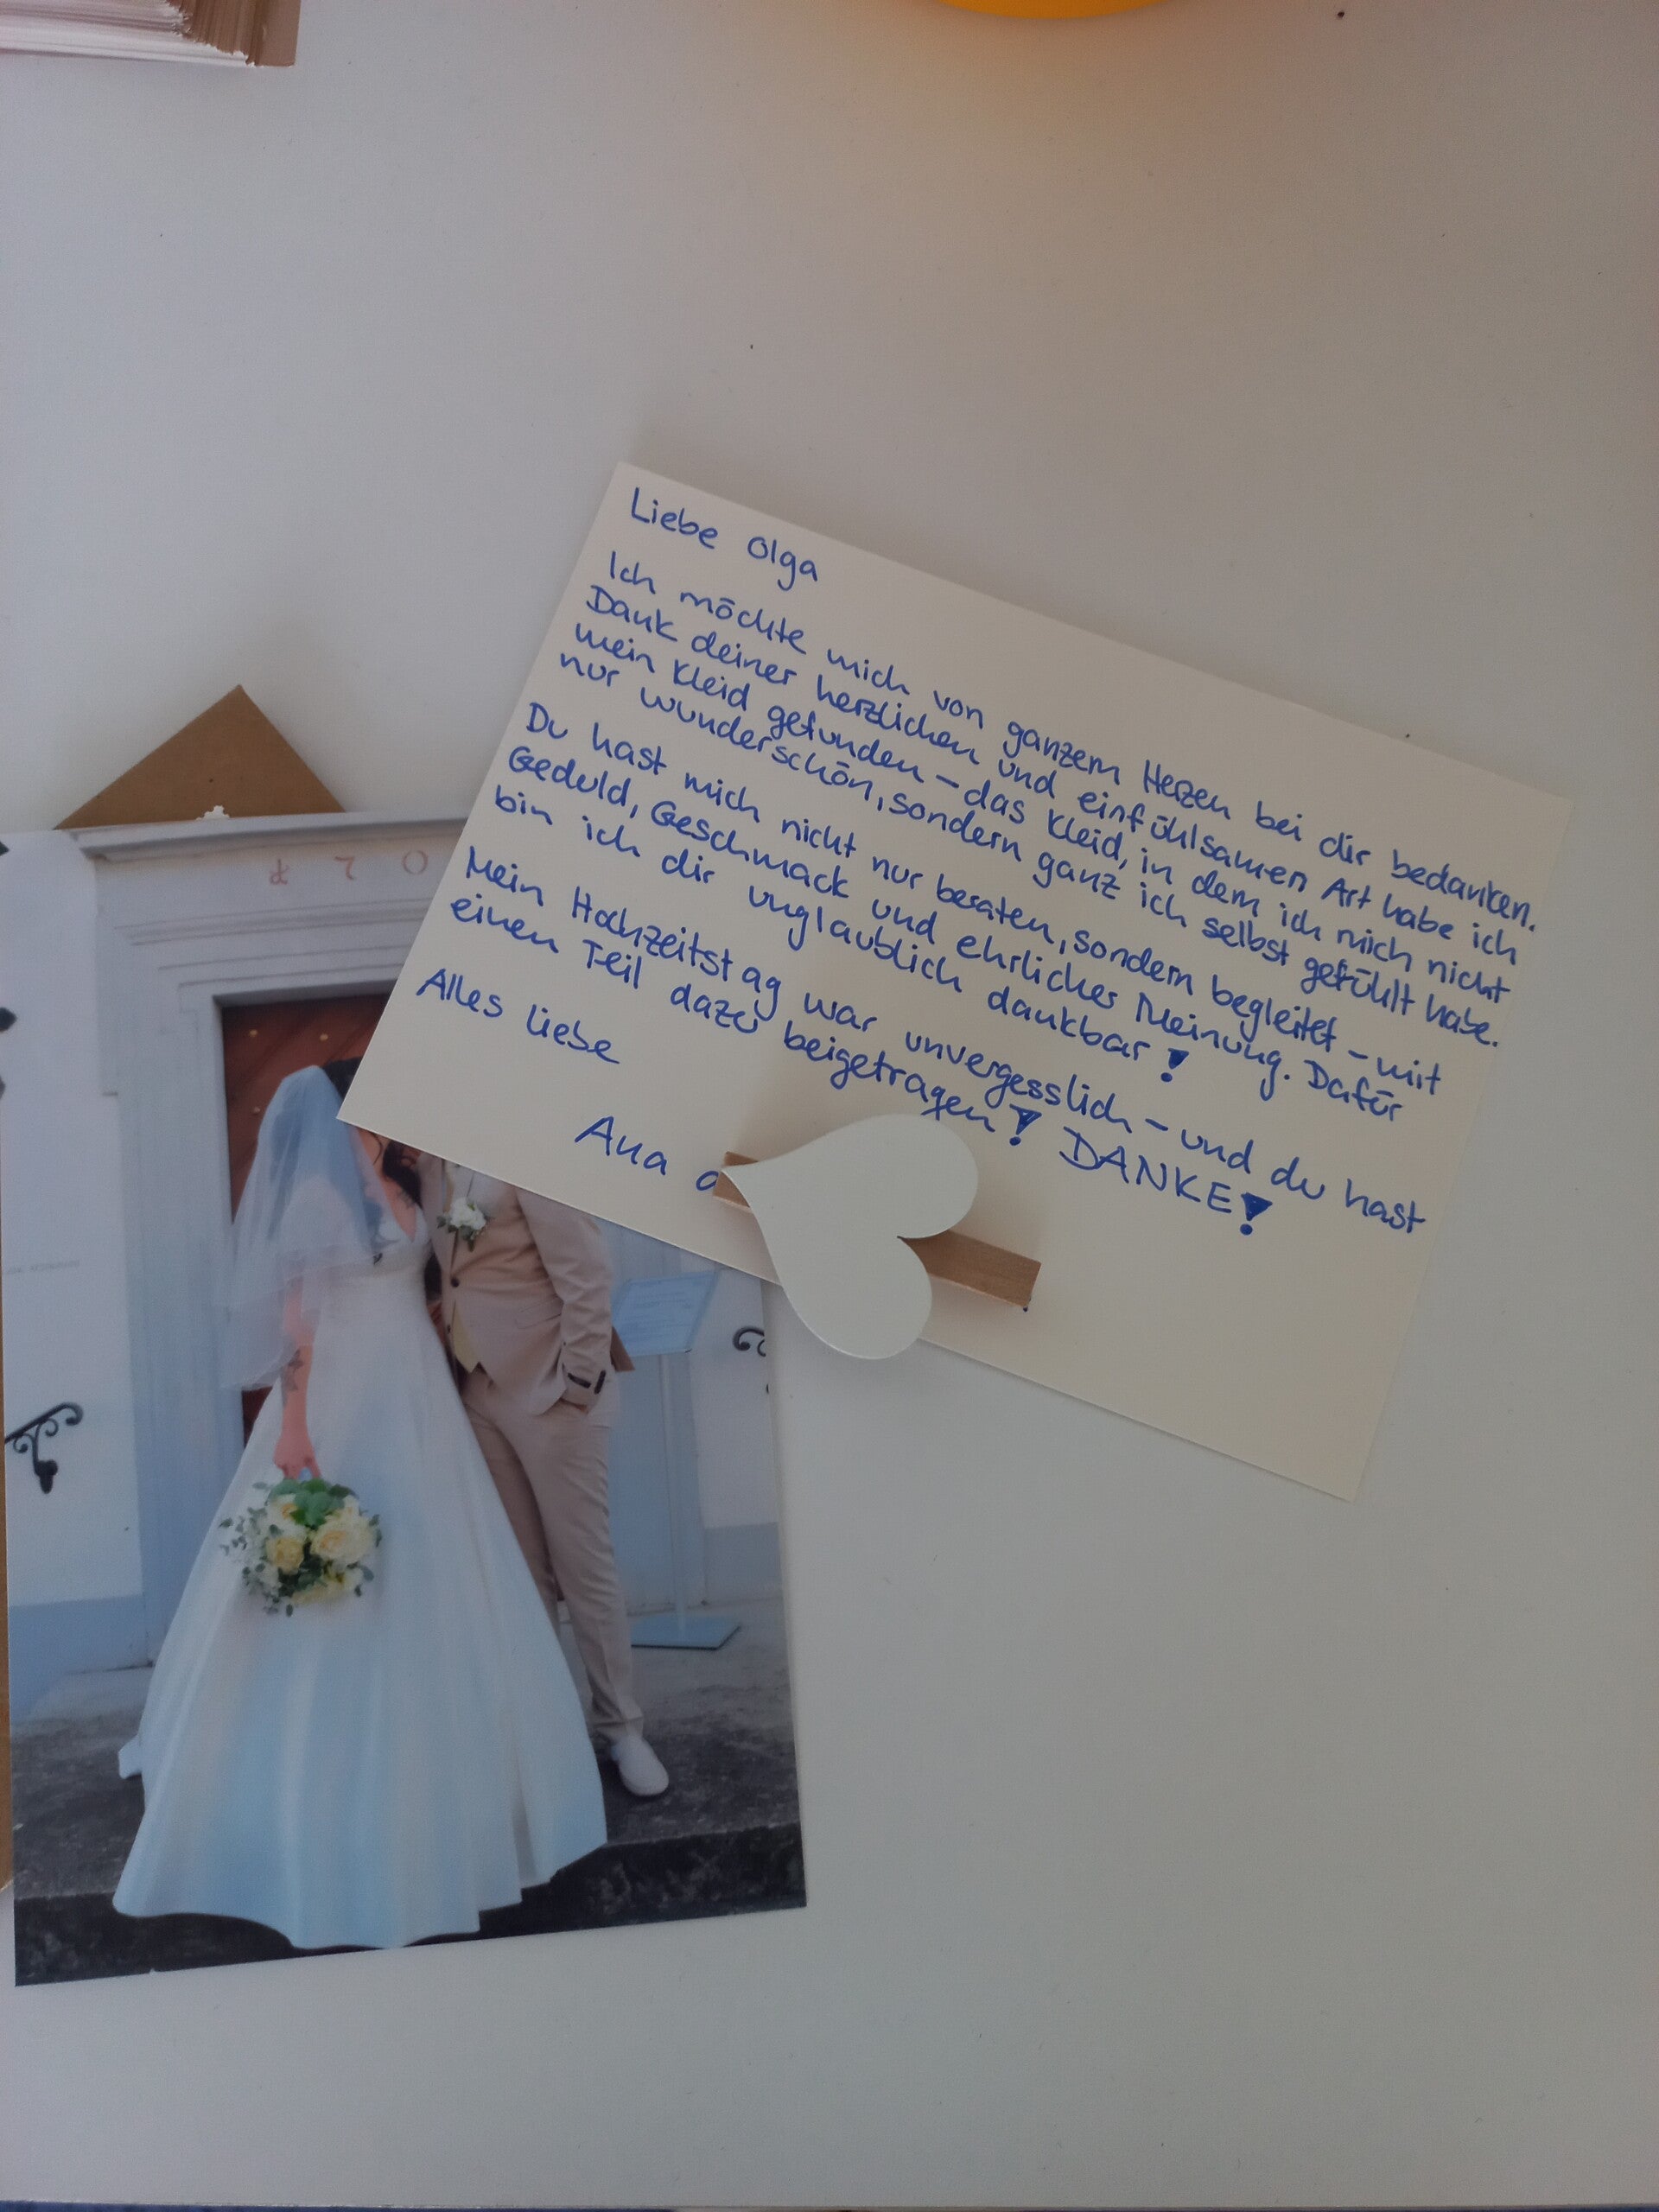 Liebe Olga
Ich möchte mich von ganzem Herzen bei dir bedanken.
Dank deiner herzlichen und einfühlsamen Art habe ich
mein Kleid gefunden – das Kleid, in dem ich mich nicht
nur wunderschön, sondern ganz ich selbst gefühlt habe.
Du hast mich nicht nur beraten, sondern begleitet – mit
Geduld, Geschmack und ehrlicher Meinung. Dafür
bin ich dir unglaublich dankbar!
Mein Hochzeitstag war unvergesslich – und du hast
einen Teil dazu beigetragen! DANKE!
Alles liebe
Ana